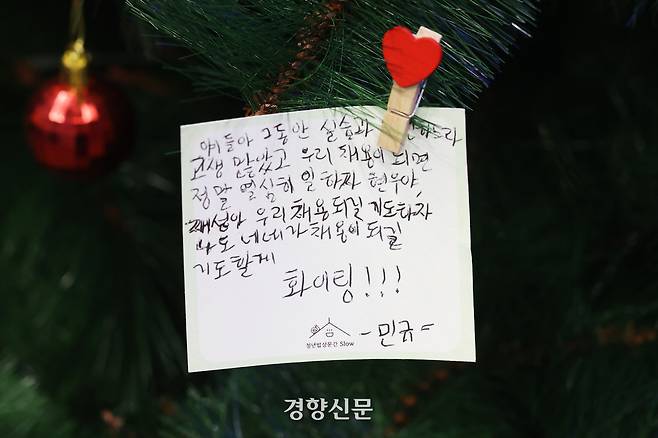 얘들아 그동안 실습과 하느라
고생 많았고 우리 채용이 되면
정말 열심히 일 하자 현우야,
재성아 우리 채용되길 기도하자
나도 네네가 채용이 되길
기도할게
화이팅!!!
청년밥상문간 Slow
-민규=
경향신문